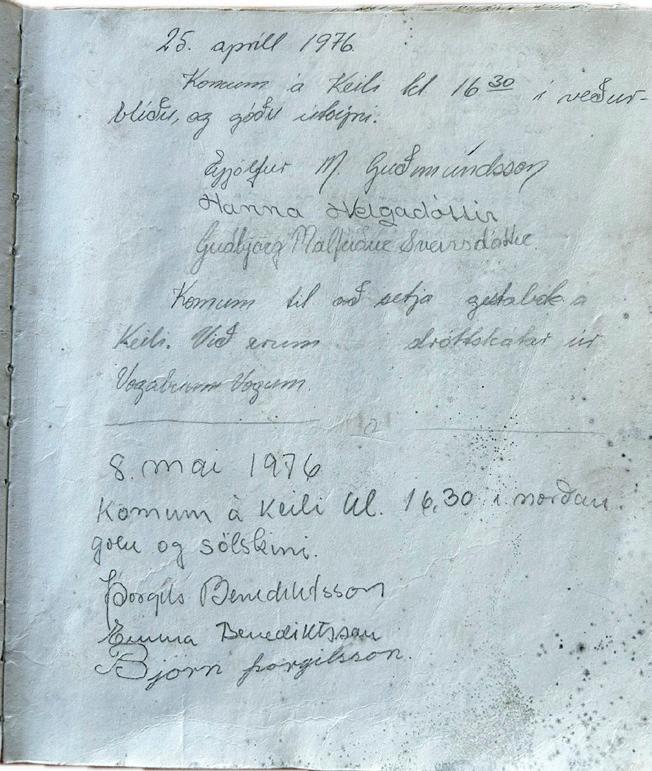 25. apríll 1976
Komum á Keili kl 16 30 í veður-
blíðu, og góðu útsýni.
Eyjólfur M. Guðmundsson
Hanna Helgadóttir
Guðbjörg Málfríður Sveinsdóttir
Komum til að setja gestabók á
Keili. Við erum dróttskátar úr
Vogabúum Vogum.
8. mai 1976
Komum á Keili kl. 16,30 í norðan
golu og sólskini.
Þorgils Benediktsson
Emma Benediktsson
Björn Þorgilsson.